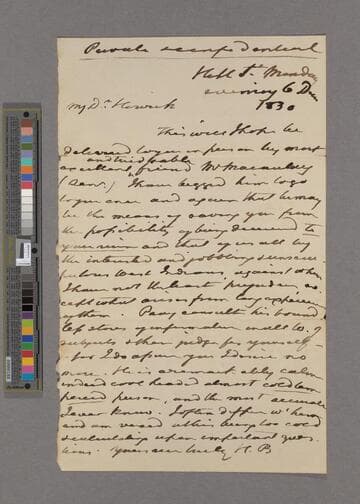 Private & confidential
Hill St. Monday
evening 6 Dec
1830
My Dr. Howick
This will I hope be
delivered to you in person by my most
and trusty & able
excellent friend Mr Macaulay
(Senr.) I have begged him to go
to you once and again that he may
be the means of saving you from
the possibility of being deceived to
your ruin and that of us all by
the interested and jobbing & unscru-
pulous West Indians, against whom
I have not the least prejudice, ex-
cept what arises from long experience
of them. Pray consult his bound-
less stores of information on all W. I.
subjects & then judge for yourself
for I do assure you I desire no
more. He is a most ably calm
indeed cool headed almost cold tem-
pered person, and the most accurate
I ever knew. I often differ wt. him
and am vexed at his being too cold
upon important ques-
tions. Yours ever truly H. B